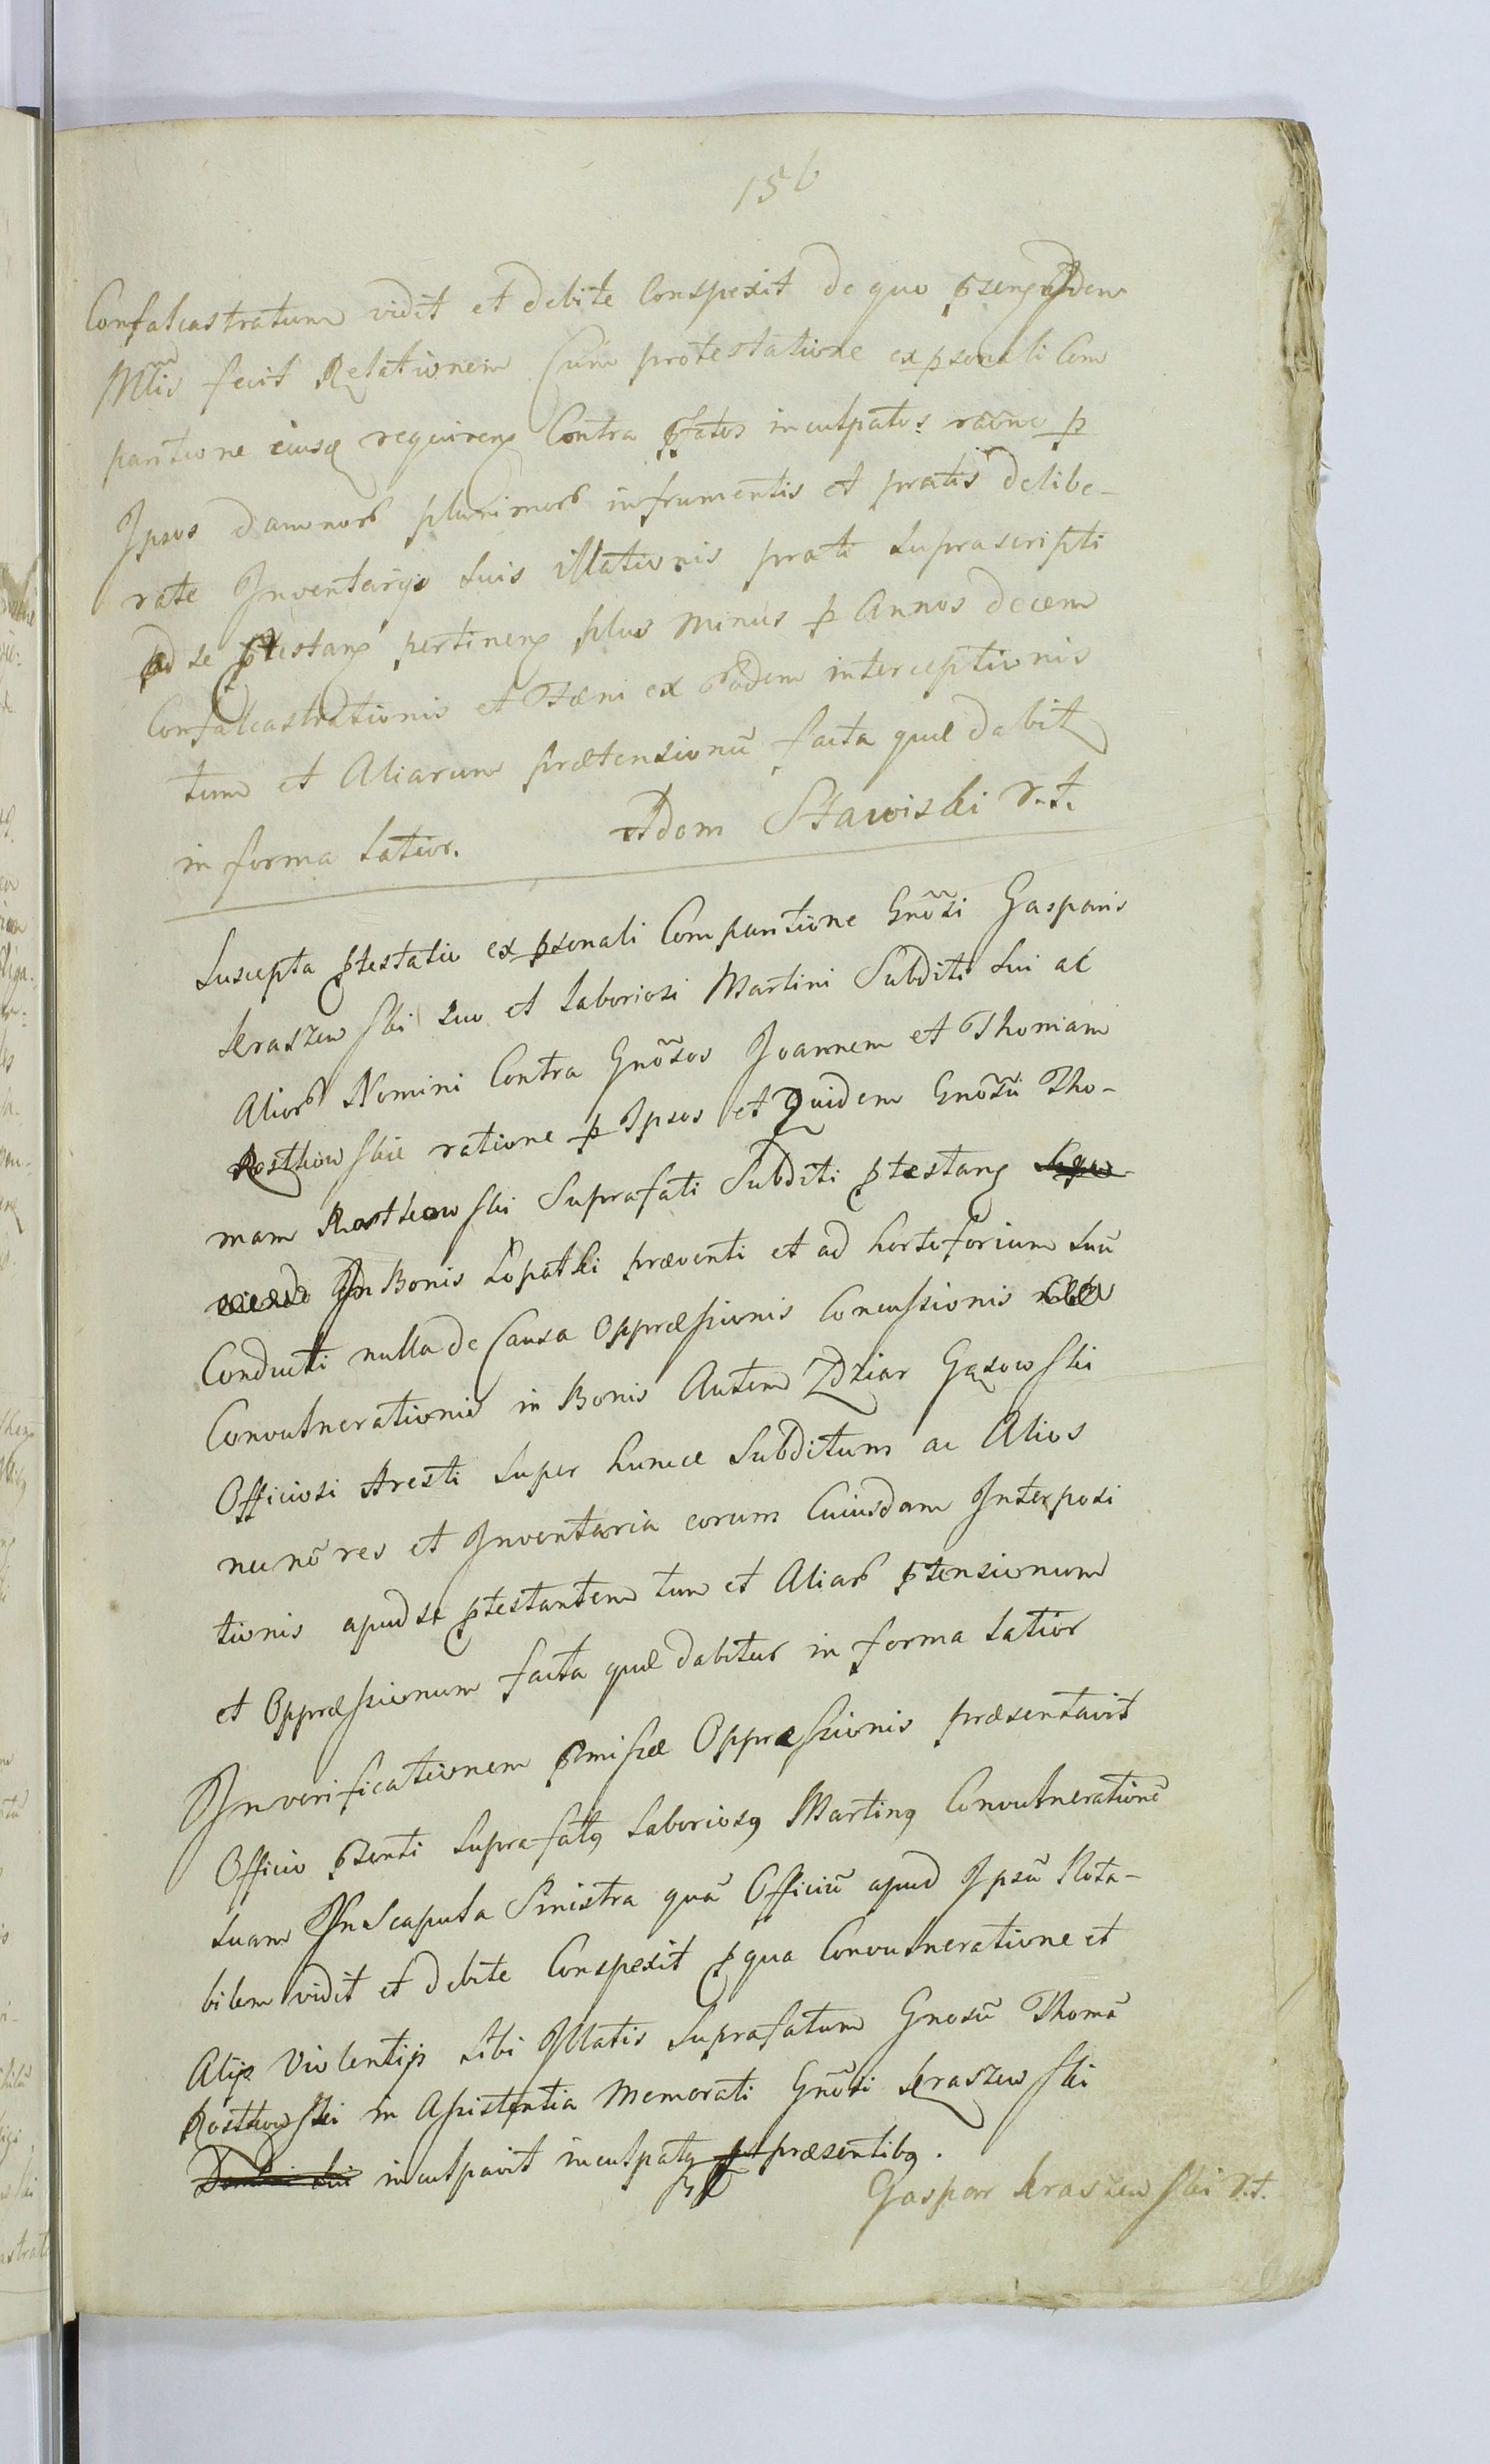 156
Confalcastratum vidit et debite Conspexit de quo
Mtrio fecit Relationem Cum protestatione ex psonali Com
paritione eiusq requirens Contra pfatos inculpatos raõne p
Ipsos damnorb plurimorb in frumentis et pratis delibe-
rate Inventarijs suis illationis prati suprascripti
ad se ptestans pertinens plus minus p Annos decem
Confalcastrationis et Fæni ex eodem interceptionis
tum et Aliarum prætensionũ facta quæ dabit
in forma latior. Adam Stawiski r.t.
Suscepta ptestatio ex psonali Comparitione Gnõsi Gasparis
Kraszewski suo et laboriosi Martini Subditi sui ac
Aliorb Nomini Contra Gnõsos Joannem et Thomam
Rostkowskie ratione p Ipsos et Quidem Gnõsũ Tho-
mam Rostkowski Suprafati Subditi ptestans
In Bonis Lopatki præventi et ad hortiforium suũ
Conducti nulla de Causa Oppræssionis Concussionis
Convulnerationis in Bonis Autem Zdziar Gąsowski
Officiosi Aresti super hunce subditum ac Alios
nec nõ res et Inventaria eorum Cuiusdam Interposi
tionis apud se ptestantem tum et Aliarb ptensionum
et Oppræssionum facta quæ dabitur in forma latior
In verificationem pmissæ Oppræssionis præsentavit
Officio psenti suprafatq laboriosq Martinq Convulnerationẽ
suam In Scapula Sinistra quã Officiũ apud Ipsũ Nota-
bilem vidit et debite Conspexit p qua Convulneratione et
Alijs Violentijs sibi Illatis suprafatum Gnosũ Thomã
Rostkowski in Assistentia Memorati Gnõsi Kraszewski
inculpavit inculpatq præsentibq.
Gaspar Kraszewski r.t.